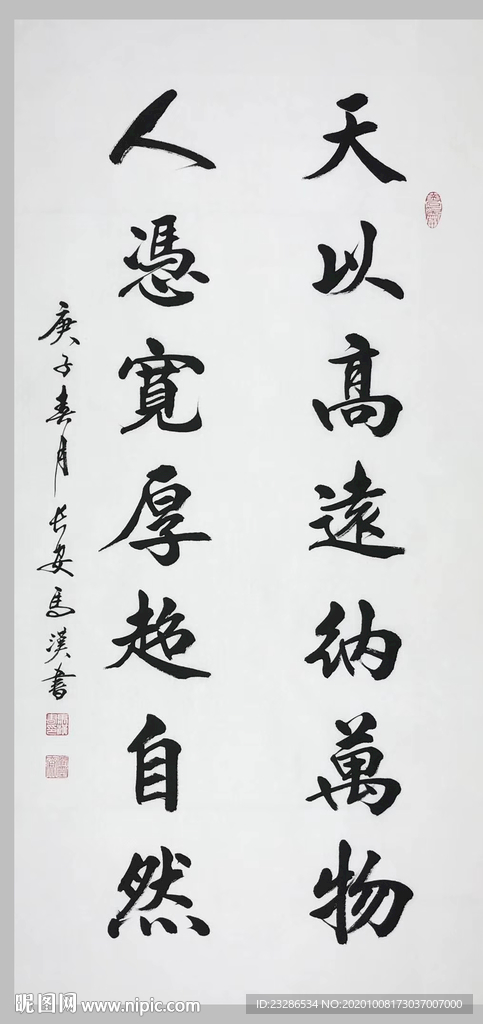 天以高遠納萬物
人憑寬厚超自然
庚子春月長安馬漢書
昵图网 www.nipic.com
ID:23286534 NO:20201008173037007000